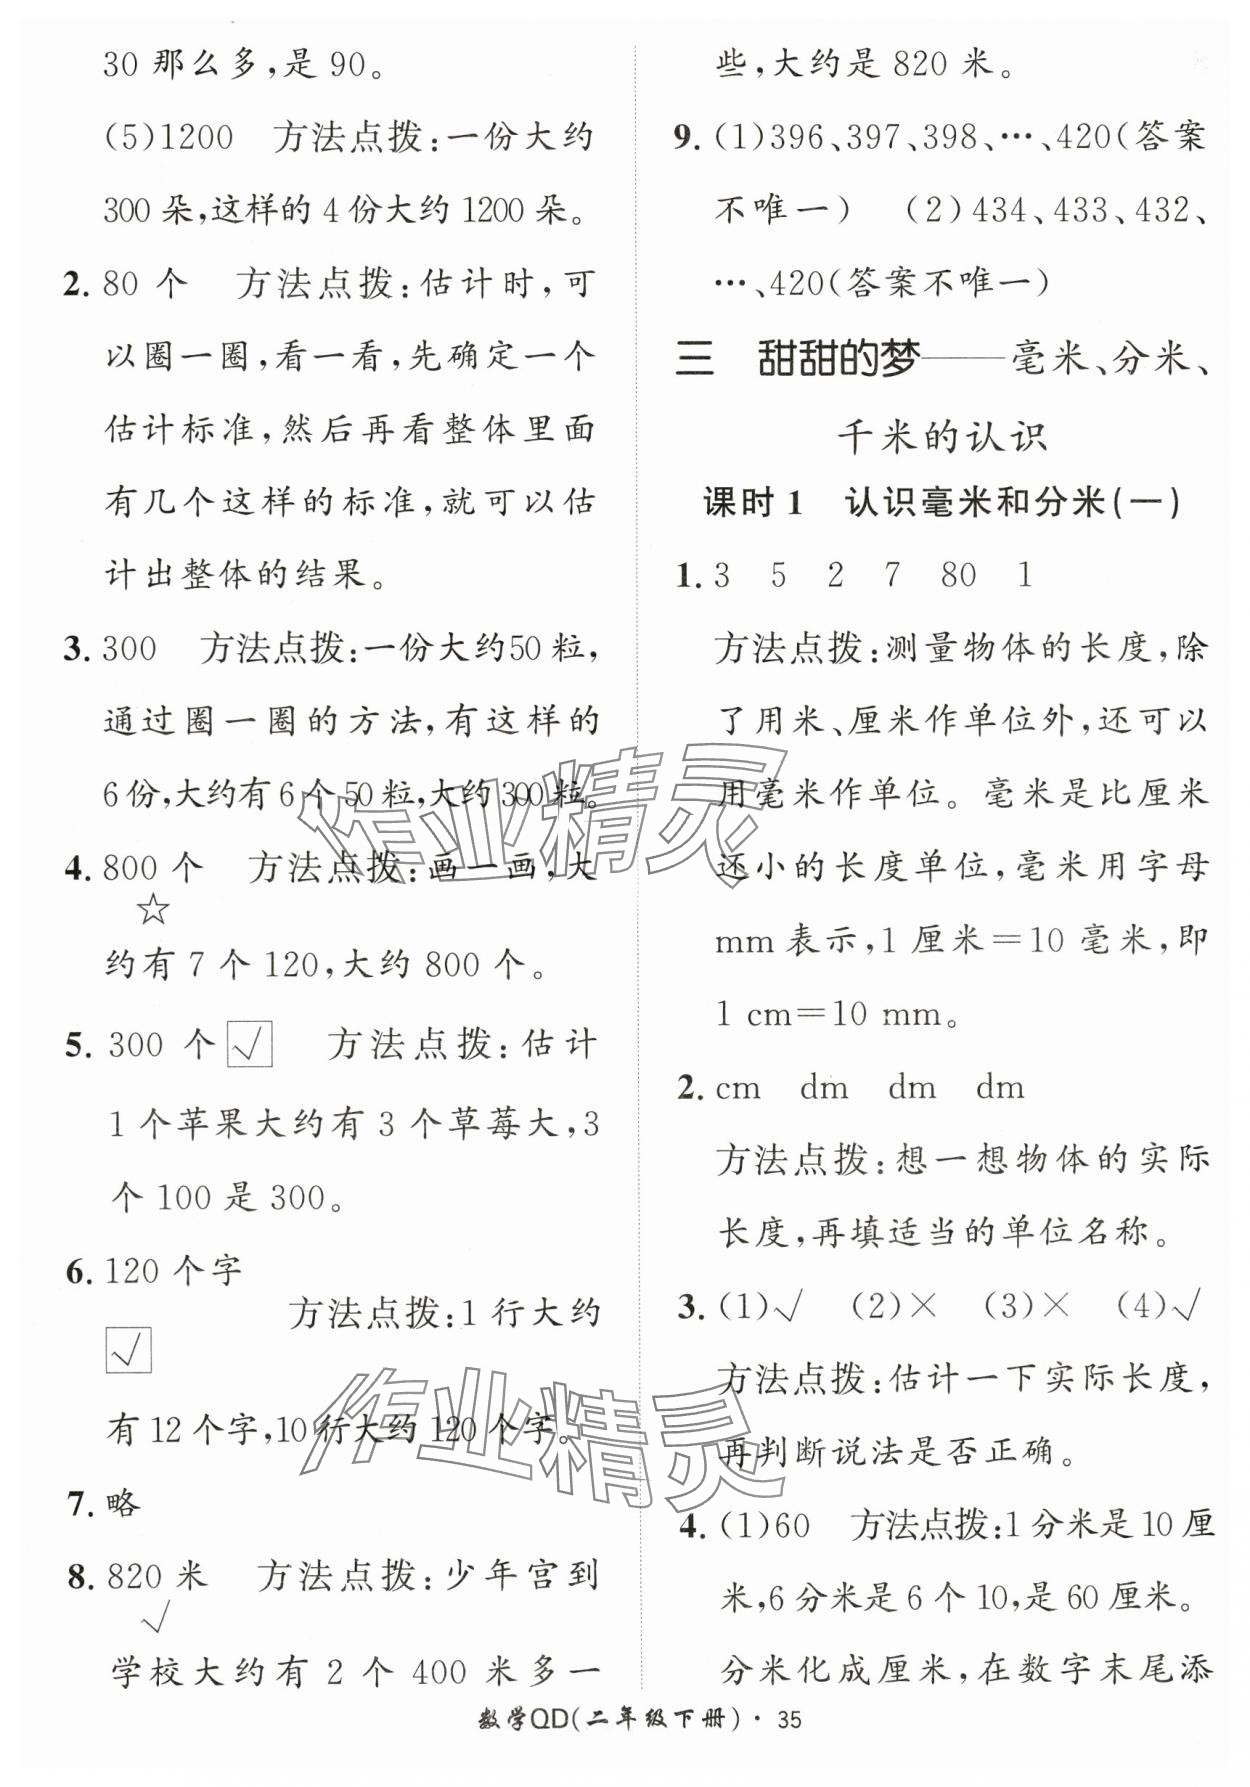 30 那么多,是 90。
(5)1200 方法点拨:一份大约
300 朵,这样的 4 份大约 1200 朵。
2. 80 个 方法点拨:估计时,可
以圈一圈,看一看,先确定一个
估计标准,然后再看整体里面
有几个这样的标准,就可以估
计出整体的结果。
3. 300 方法点拨:一份大约50 粒,
通过圈一圈的方法,有这样的
6份,大约有 6 个 50 粒,大约 300 粒。
4. 800 个 方法点拨:画一画,大
☆
约有 7 个 120,大约 800 个。
5. 300 个 √ 方法点拨:估计
1 个苹果大约有 3 个草莓大,3
个 100 是 300。
6. 120 个字
√ 方法点拨:1 行大约
有 12 个字,10 行大约 120 个字。
7. 略
8. 820 米 方法点拨:少年宫到
√
学校大约有 2 个 400 米多一
些,大约是 820 米。
9. (1)396、397、398、…、420(答案
不唯一) (2)434、433、432、
…、420(答案不唯一)
三 甜甜的梦——毫米、分米、
千米的认识
课时 1 认识毫米和分米(一)
1. 3 5 2 7 80 1
方法点拨:测量物体的长度,除
了用米、厘米作单位外,还可以
用毫米作单位。毫米是比厘米
还小的长度单位,毫米用字母
mm 表示,1 厘米=10 毫米,即
1 cm=10 mm。
2. cm dm dm dm
方法点拨:想一想物体的实际
长度,再填适当的单位名称。
3. (1)√ (2)× (3)× (4)√
方法点拨:估计一下实际长度,
再判断说法是否正确。
4. (1)60 方法点拨:1 分米是 10 厘
米,6 分米是 6 个 10,是 60 厘米。
分米化成厘米,在数字末尾添
数学QD(二年级下册)·35
作业精灵
作业精灵